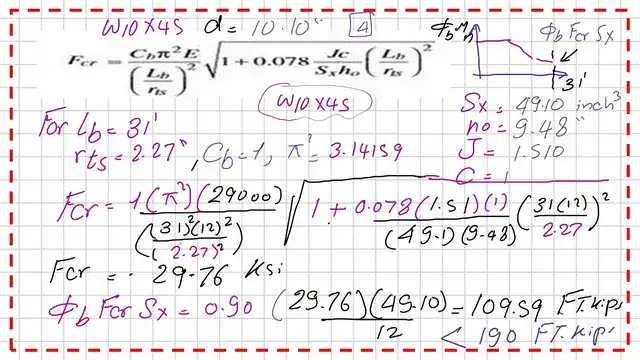 W10X45 d = 10.10" 4
Fcr = Cbπ²E / (Lb/rts)² √(1 + 0.078 Jc/(Sxho) (Lb/rts)²)
ΦbMn
Φb Fcr Sx
31'
W10X45
For Lb = 31'
rts = 2.27", Cb = 1, π² = 3.14159
Sx = 49.10 inch³
ho = 9.48"
J = 1.510
C = 1
Fcr = 1(π²)(29000) / ((31)²(12)²/(2.27)²) √(1 + 0.078(1.51)(1)/((49.1)(9.48)) (31(12)/2.27)²)
Fcr = 29.76 Ksi
Φb Fcr Sx = 0.90 (29.76)(49.10)/12 = 109.59 FT.Kips
< 190 FT.Kips